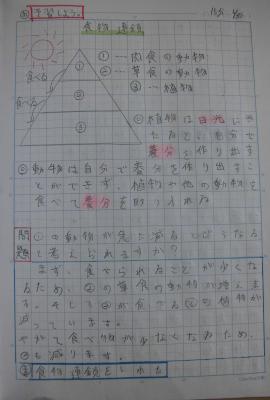 予習しよう。
食物連鎖
① … 肉食の動物
② … 草食の動物
③ … 植物
食べる
食べる
①
②
③
◎植物は日光に当
たると、自分で
養分を作り出す
◎動物は自分で養分を作り出すこ
とができず、植物や他の動物を
食べて養分を取り入れる
問題
①の動物が急に減るとどうなる
と考えられますか?
まず、食べられることが少なくな
るため、②の草食の動物が増えま
す。そして②が食べる③の植物が
減っていきます。
やがて食べ物が少なくなるため、
②も減ります。
食物連鎖